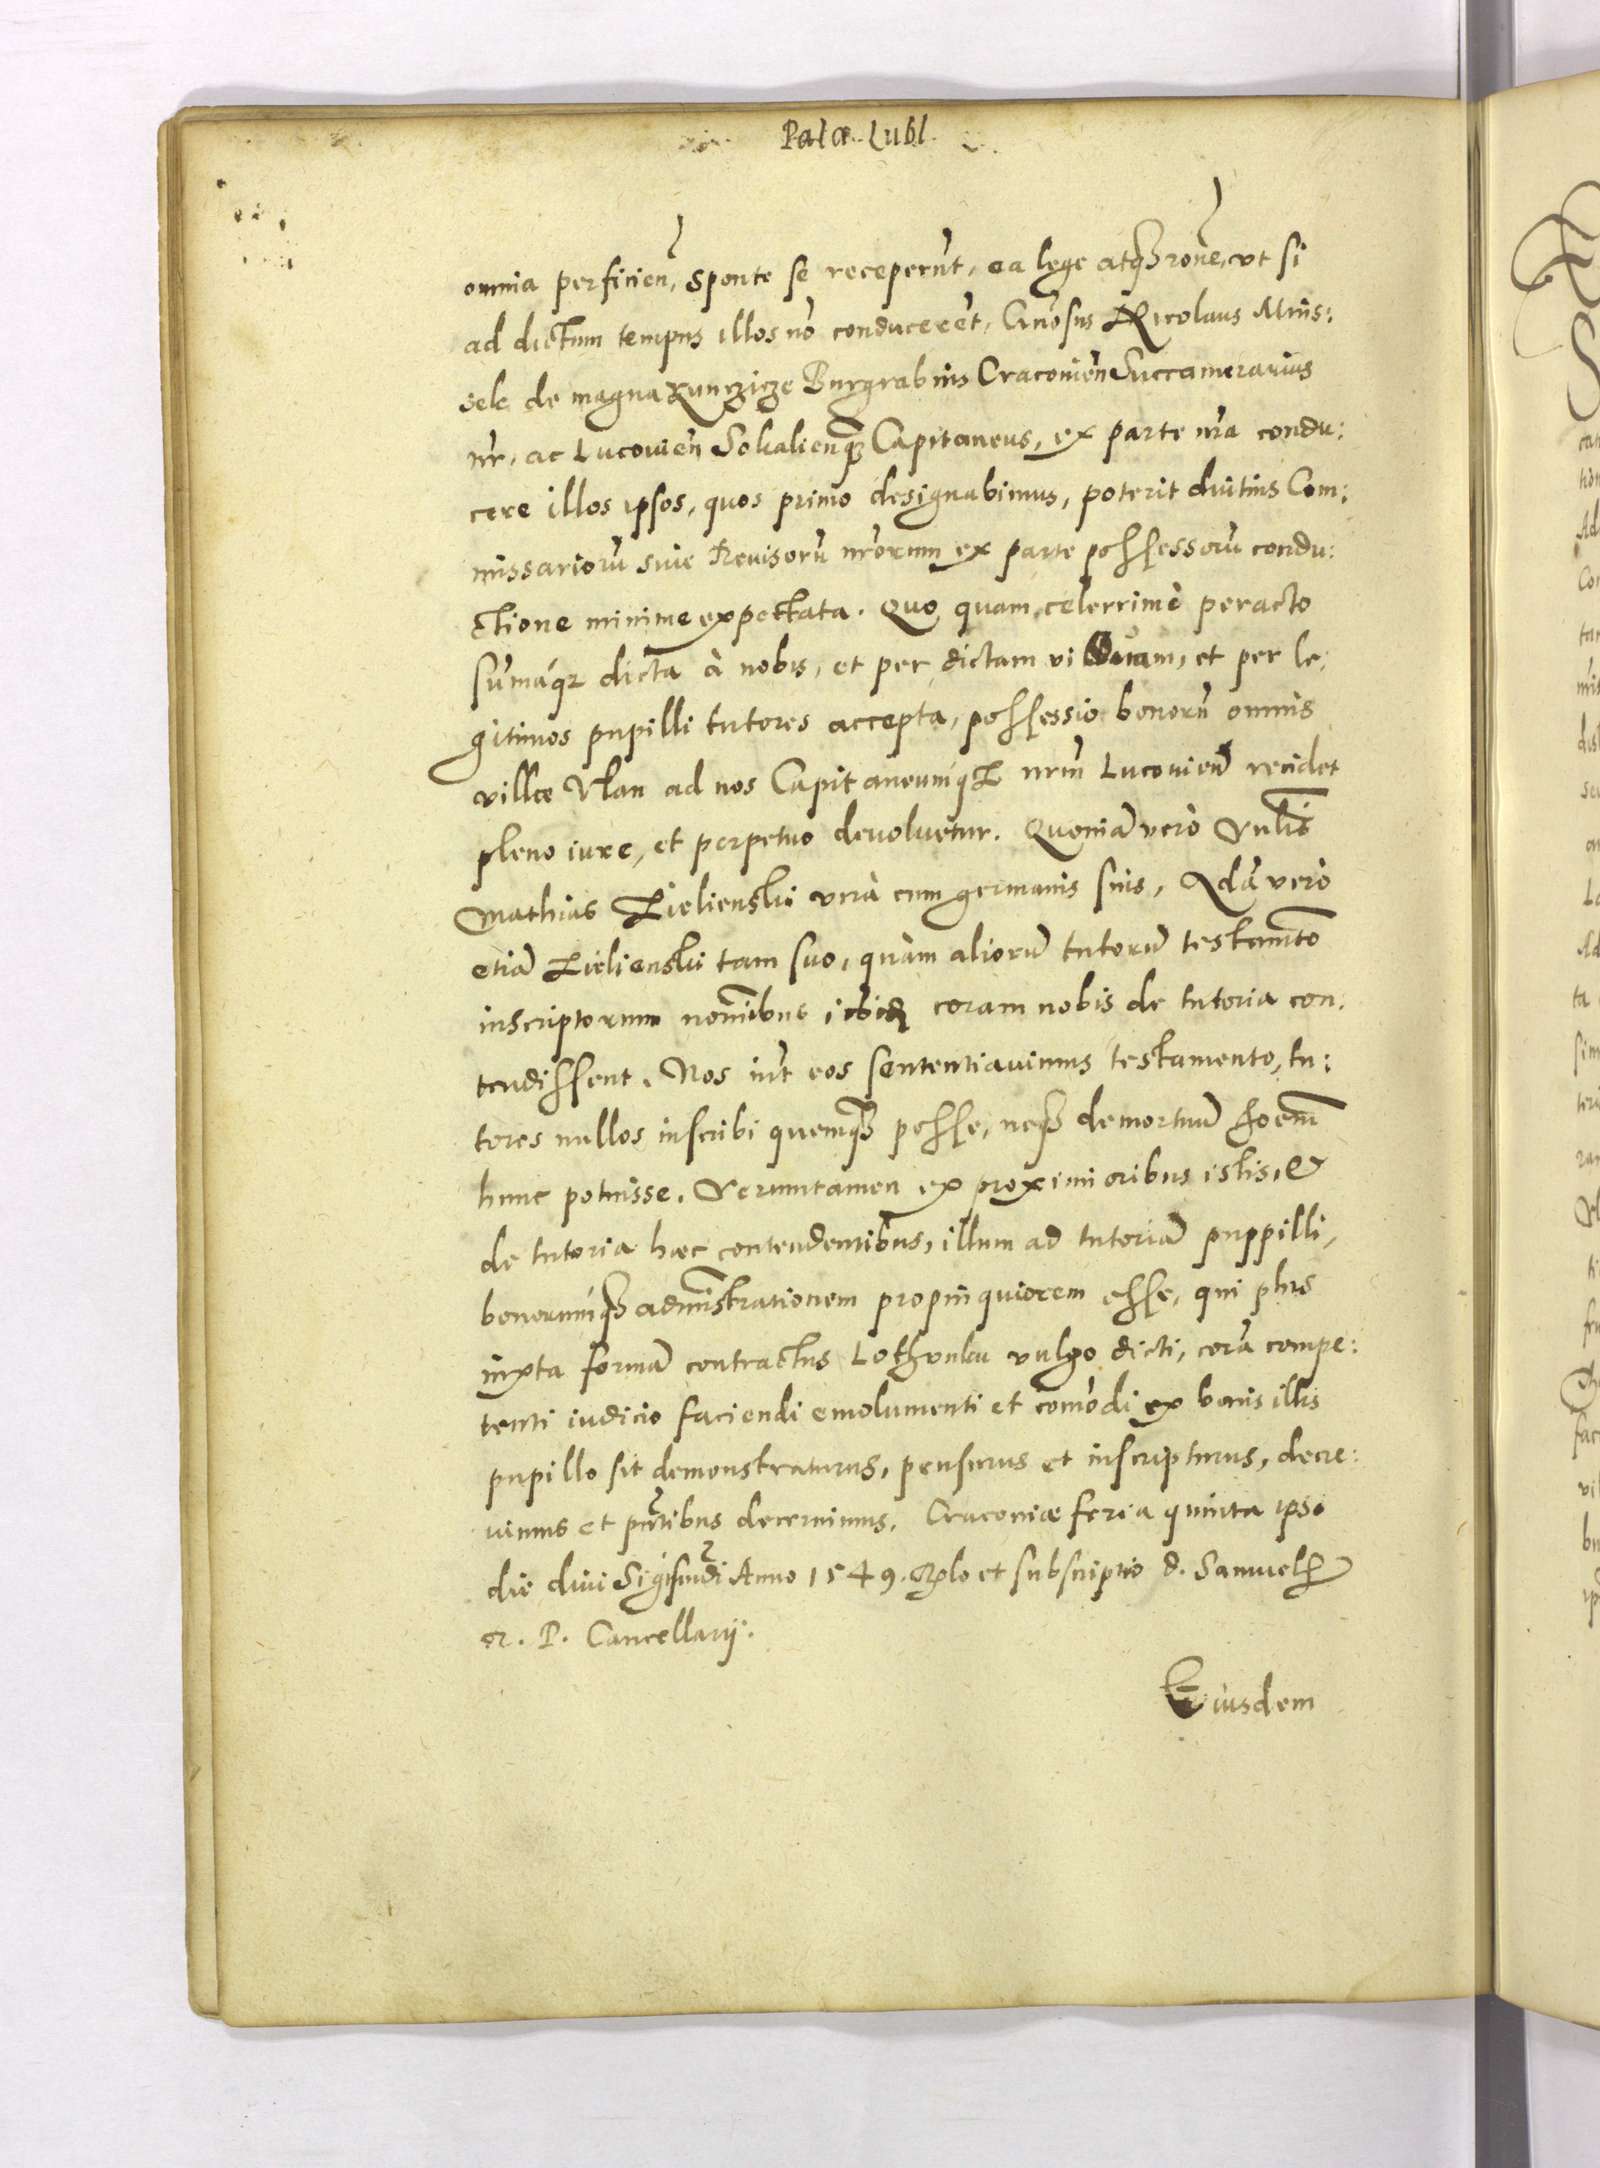 Palæ. Lubl.
omnia perficien̄, sponte se receperūt, ea lege atq₃ rōne, vt si
ad dictum tempus illos nō conducerēt, Gn̄osus Nicolaus Mnis:
sek de magna Kunczicze Burgrabius Cracouien̄ Succamerarius
nr̄, ac Lucouien̄ Sokalienq₃ Capitaneus, ex parte nr̄a condu:
cere illos ipsos, quos primo designabimus, poterit diutius Com:
missariorū siue Reuisorū nr̄orum ex parte possessorū condu:
ctione minime expectata. Quo quam celerrimè peracto
sum̄aq₃ dicta à nobis, et per dictam viduam, et per le:
gitimos pupilli tutores accepta, possessio bonorū omnis
villæ Vlan ad nos Capitaneumq₃ nr̄m Lucouien̄ recidet
pleno iure, et perpetuo deuoluetur. Quoniā vero
Mathias Zielienski vnà cum germanis suis, Adā vero
etiā Zielienski tam suo, quàm aliorū tutorū testam̄to
inscriptorum nom̄ibus ibidē coram nobis de tutoria con:
tendissent. Nos int̄ eos sententiauimus testamento, tu:
tores nullos inscribi quemq₃ posse, neq₃ demortuū hōem̄
hunc potuisse. Veruntamen ex proximioribus istis, &
de tutoria hac contendentibus, illum ad tutoriā puppilli,
bonorumq₃ adm̄istrationem propinquiorem esse, qui plus
iuxta formā contractus Lothunku vulgo dicti, corā compe:
tenti iudicio faciendi emolumenti et com̄odi ex bonis illis
pupillo sit demonstraturus, pensurus et inscripturus, decre:
uimus et pn̄tibus decernimus. Cracouiæ feria quinta ipso
die diui Sigismūdi Anno 1549. Rlo et subscriptio d. Samuelis
R. P. Cancellarij.
Eiusdem